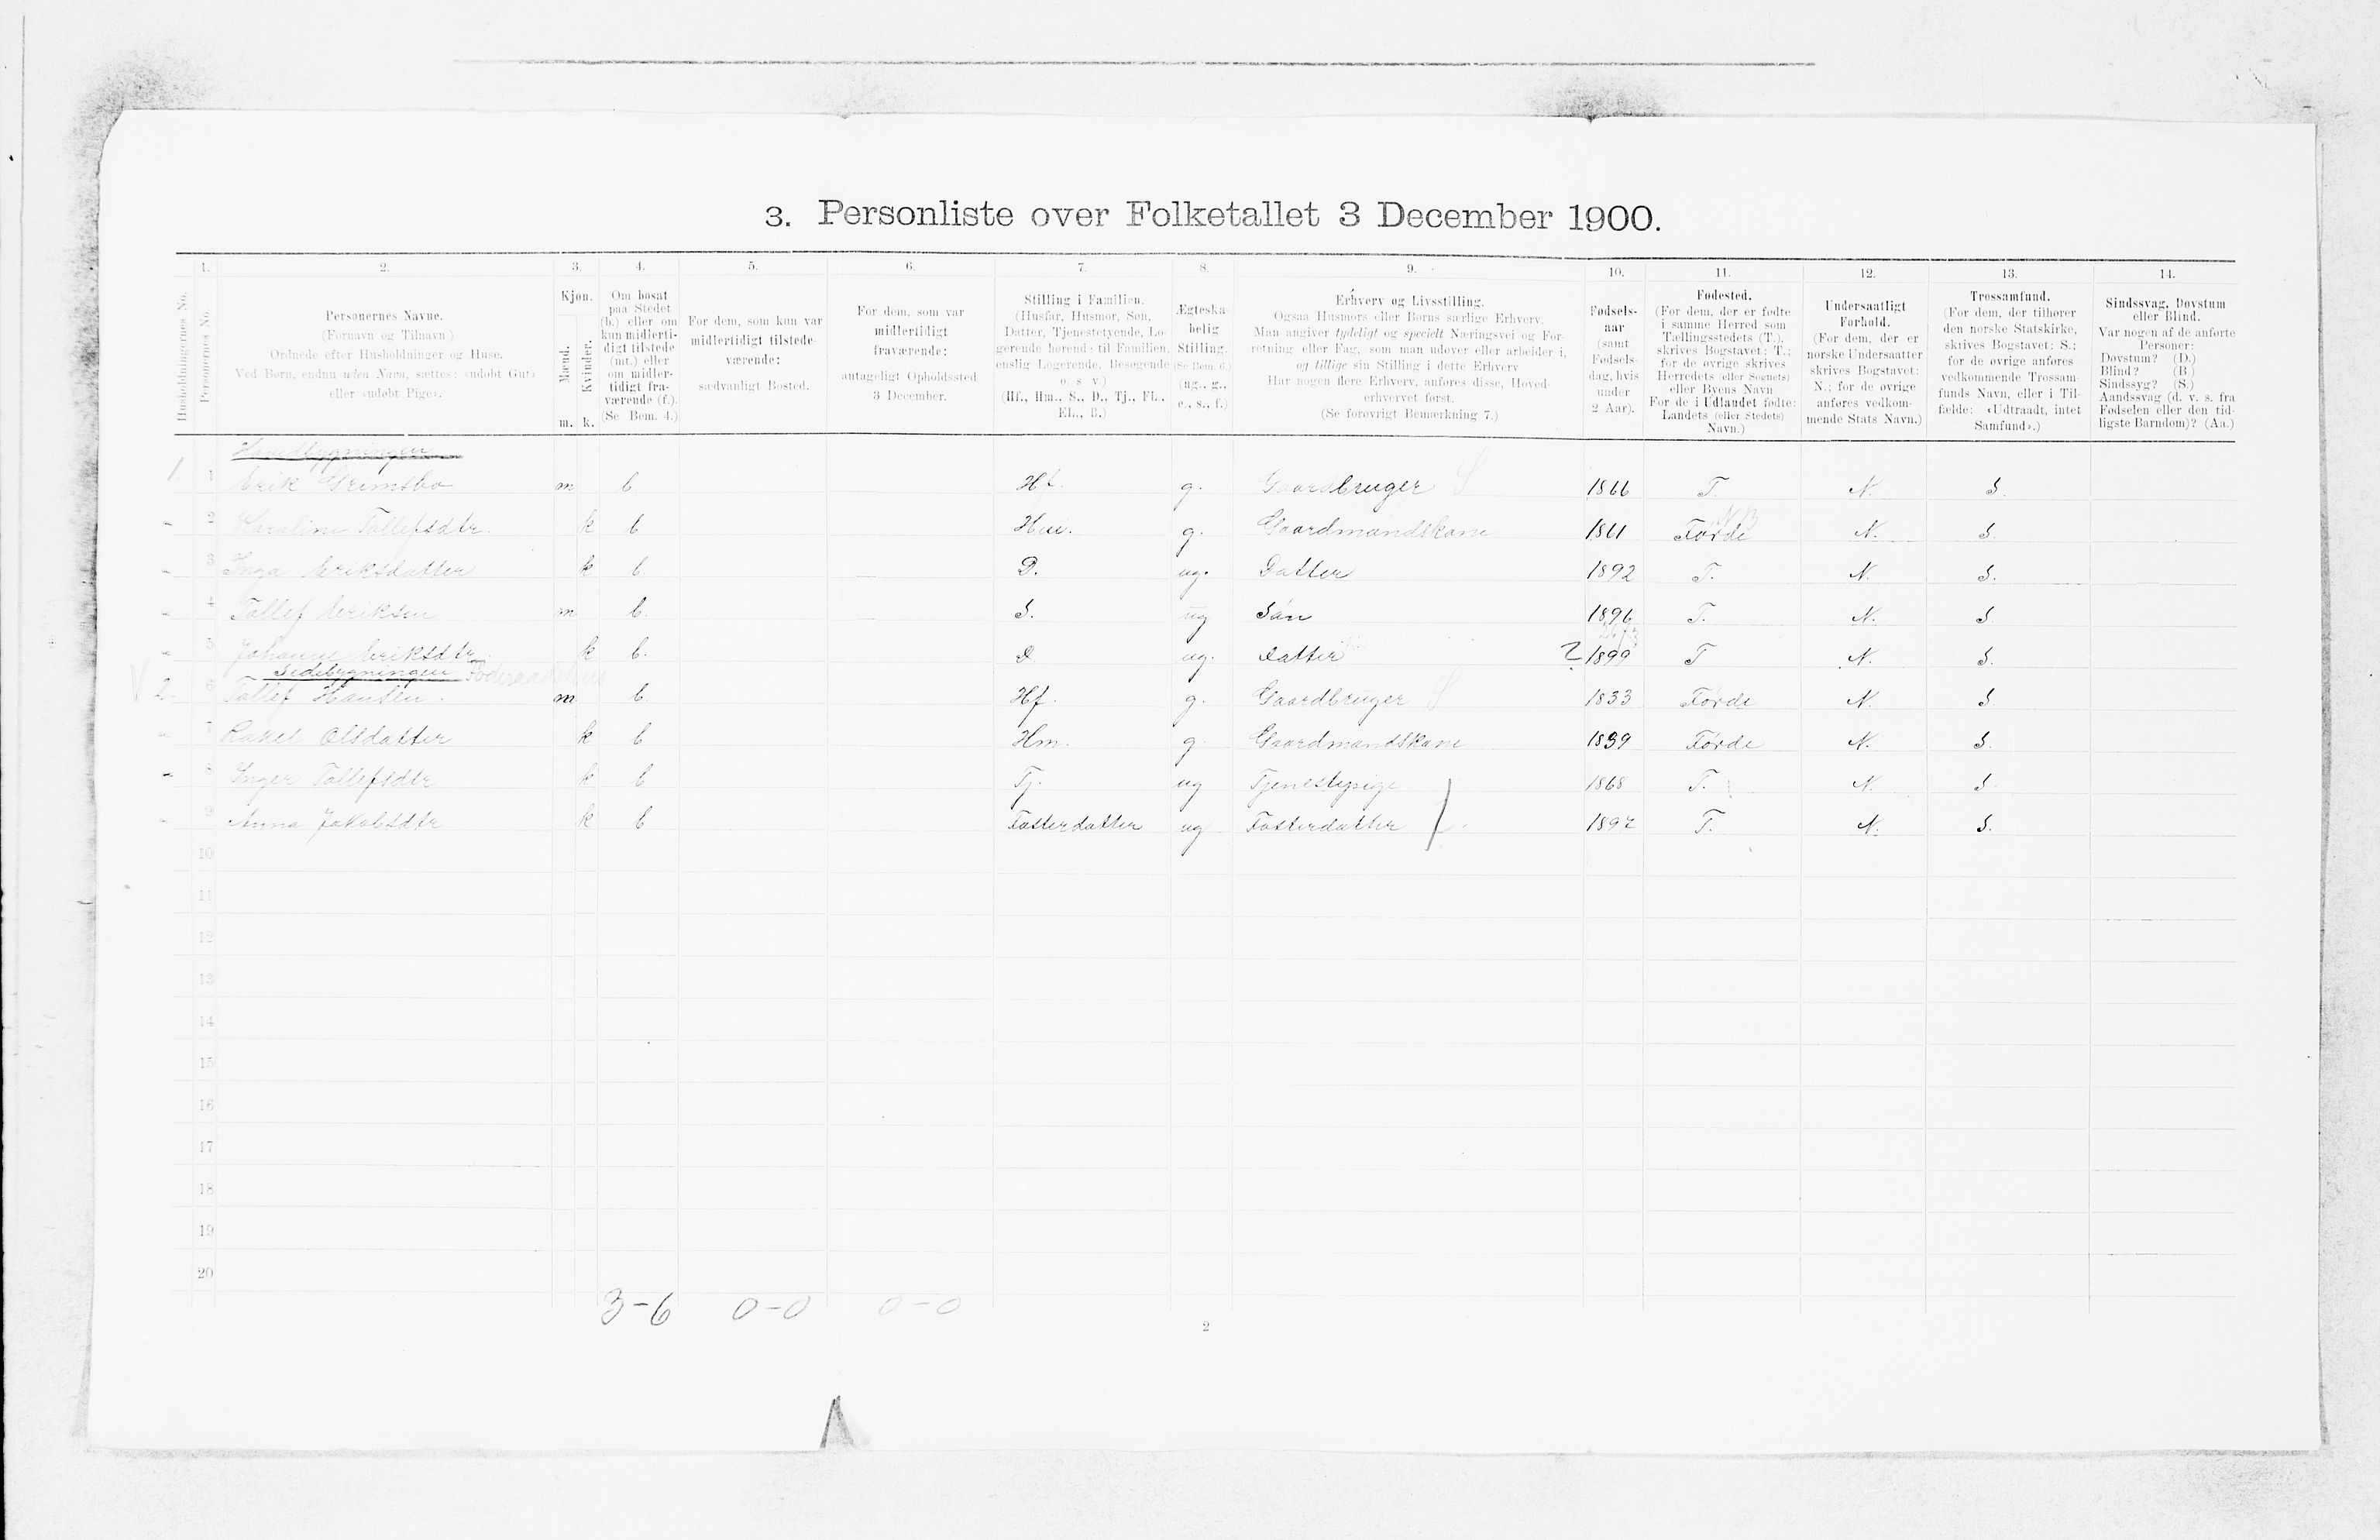 3. Personliste over Folketallet 3 December 1900.
1. 2. 3. 4. 5. 6. 7. 8. 9. 10. 11. 12. 13. 14.
Husholdningernes No.
Personernes No.
Personernes Navne.
(Fornavn og Tilnavn)
Ordnede efter Husholdninger og Huse.
Ved Børn, endnu uden Navn, sættes: «udøbt Gut»
eller «udøbt Pige».
Kjøn.
Mænd.
Kvinder.
m. k.
Om bosat
paa Stedet
(b.) eller om
kun midlerti-
digt tilstede
(mt.) eller
om midler-
tidigt fra-
værende (f.).
(Se Bem. 4.)
For dem, som kun var
midlertidigt tilstede-
værende:
sædvanligt Bosted.
For dem, som var
midlertidigt
fraværende:
antageligt Opholdssted
3 December.
Stilling i Familien.
(Husfar, Husmor, Søn,
Datter, Tjenestetyende, Lo-
gerende hørende til Familien,
enslig Logerende, Besøgende
o. s. v.)
(Hf., Hm., S., D., Tj., FL.,
EL., B.)
Ægteska-
belig
Stilling.
(Se Bem. 6.)
(ug., g.,
e., s., f.)
Erhverv og Livsstilling.
Ogsaa Husmors eller Børns særlige Erhverv.
Man angiver tydeligt og specielt Næringsvei og For-
retning eller Fag, som man udøver eller arbeider i,
og tillige sin Stilling i dette Erhverv
Har nogen flere Erhverv, anføres disse, Hoved-
erhvervet først.
(Se forøvrigt Bemærkning 7.)
Fødsels-
aar
(samt
Fødsels-
dag, hvis
under
2 Aar).
Fødested.
(For dem, der er fødte
i samme Herred som
Tællingsstedets (T.),
skrives Bogstavet: T.;
for de øvrige skrives
Herredets (eller Sognets)
eller Byens Navn
For de i Udlandet fødte:
Landets (eller Stedets)
Navn.)
Undersaatligt
Forhold.
(For dem, der er
norske Undersaatter
skrives Bogstavet:
N.; for de øvrige
anføres vedkom-
mende Stats Navn.)
Trossamfund.
(For dem, der tilhører
den norske Statskirke,
skrives Bogstavet: S.;
for de øvrige anføres
vedkommende Trossam-
funds Navn, eller i Til-
fælde: «Udtraadt, intet
Samfund».)
Sindssvag, Døvstum
eller Blind.
Var nogen af de anførte
Personer:
Døvstum? (D.)
Blind? (B.)
Sindssyg? (S.)
Aandssvag (d. v. s. fra
Fødselen eller den tid-
ligste Barndom)? (Aa.)
1. 1 Erik Grimsbo m b Hf. g. Gaardbruger S 1866 T. N. S.
- 2 Karoline Tollefsdtr. k b g. Gaardmandskone 1861 Førde N. S.
- 3 Inga Eriksdatter k b. D. ug. Datter 1892 T. N. S.
- 4 Tollef Eriksen m b. S. ug Søn 1896 T. N. S.
- 5 Johanne Eriksdtr. k b. D ug. Datter 1899 T N. S.
Sidebygningen
2. 6 Tollef Hansen. m b. Hf. g. Gaardbruger S 1833 Førde N. S
- 7 Rakel Olsdatter k b Hm. g. Gaardmandskone 1839 Førde N. S.
- 8 Inger Tollefsdtr k b Tj. ug Tjenestepige 1868 T. N. S
- 9 Anna Jakobsdtr k b Fosterdatter ug Fosterdatter 1897 T. N. S.
10
11
12
13
14
15
16
17
18
19
20
3-6 0-0 0-0
2